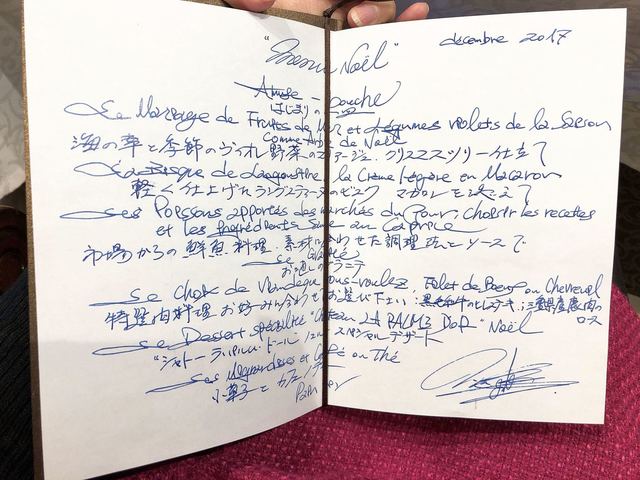 décembre 2017
"Menu Noël"
Amuse-bouche
はじまりの
Le Mariage de Fruits de Mer et Légumes violets de la Saison
Comme Arbre de Noël
海の幸と季節のヴィオレ野菜のマリアージュ クリスマスツリー仕立て
La Bisque de Langoustine, la Crème légère en Macaron
軽く仕上げたラングスティーヌのビスク マカロンを添えて
Les Poissons apportés des marchés du Jour, choisir les recettes
et les Ingrédients Sauce au Caprice
市場からの鮮魚料理、素材に合わせた調理法とソースで
Le Granité
お口直しのグラニテ
Le choix de Viandeque vous voulez, Filet de Boeuf ou Chevreuil
特選肉料理 お好みに合わせお選び下さい:黒毛和牛のヒレステーキ、三重県産鹿肉のロース
Le Dessert spécialité "Château la PALME D'or" Noël
"シャトー ラ・パルム・ドール" ノエル スペシャル デザート
Les Mignardises et Café ou Thé
小菓子とカフェ